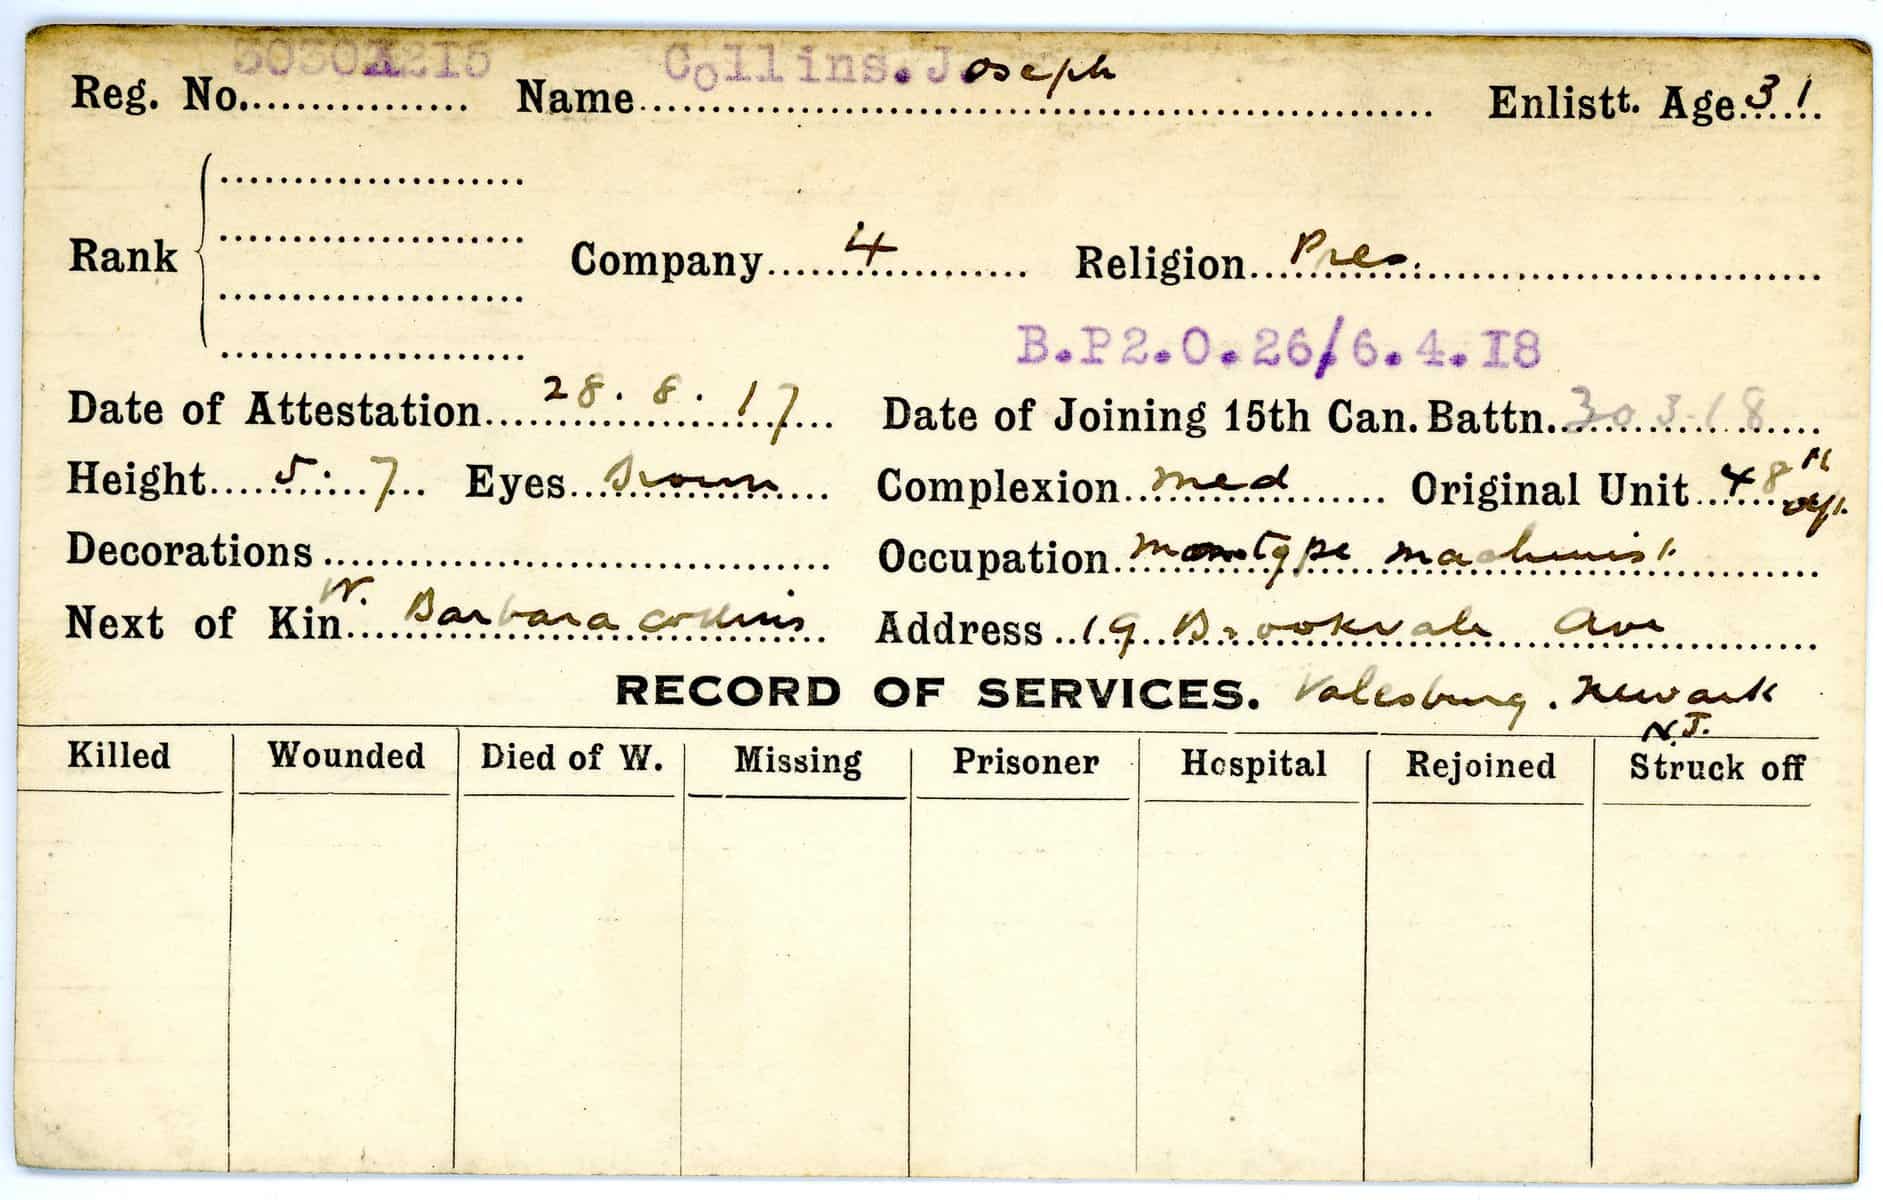 Reg. No. Name Collins. Joseph Enlistt. Age 31
Rank Company 4 Religion Pres.
B.P2.O.26/6.4.I8
Date of Attestation 28.8.17 Date of Joining 15th Can. Battn. 30 3.18
Height 5:7 Eyes Brown Complexion Med Original Unit 48th
Decorations Occupation Monotype Machinist
Next of Kin W. Barbara Collins Address 19 Brookvale Ave
RECORD OF SERVICES. Valesburg. Newark
N.J.
Killed Wounded Died of W. Missing Prisoner Hospital Rejoined Struck off